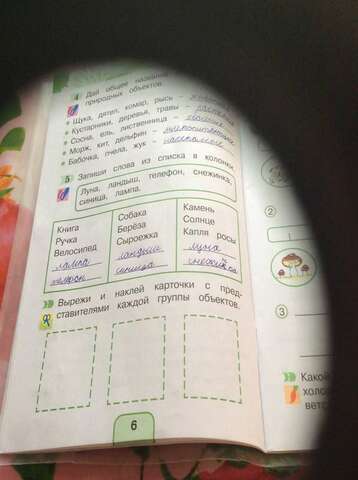 4 Дай общее название
природных объектов.
Щука, дятел, комар, рысь –
Кустарники, деревья, травы – растения
Сосна, ель, лиственница – хвойные
Морж, кит, дельфин – млекопитающие
Бабочка, пчела, жук – насекомые
5 Запиши слова из списка в колонки
Луна, ландыш, телефон, снежинка,
синица, лампа.
Книга Собака Камень
Ручка Берёза Солнце
Велосипед Сыроежка Капля росы
лампа ландыш луна
телефон синица
Вырежи и наклей карточки с пред-
ставителями каждой группы объектов.
6
2
1
3
Какой
холо
вето